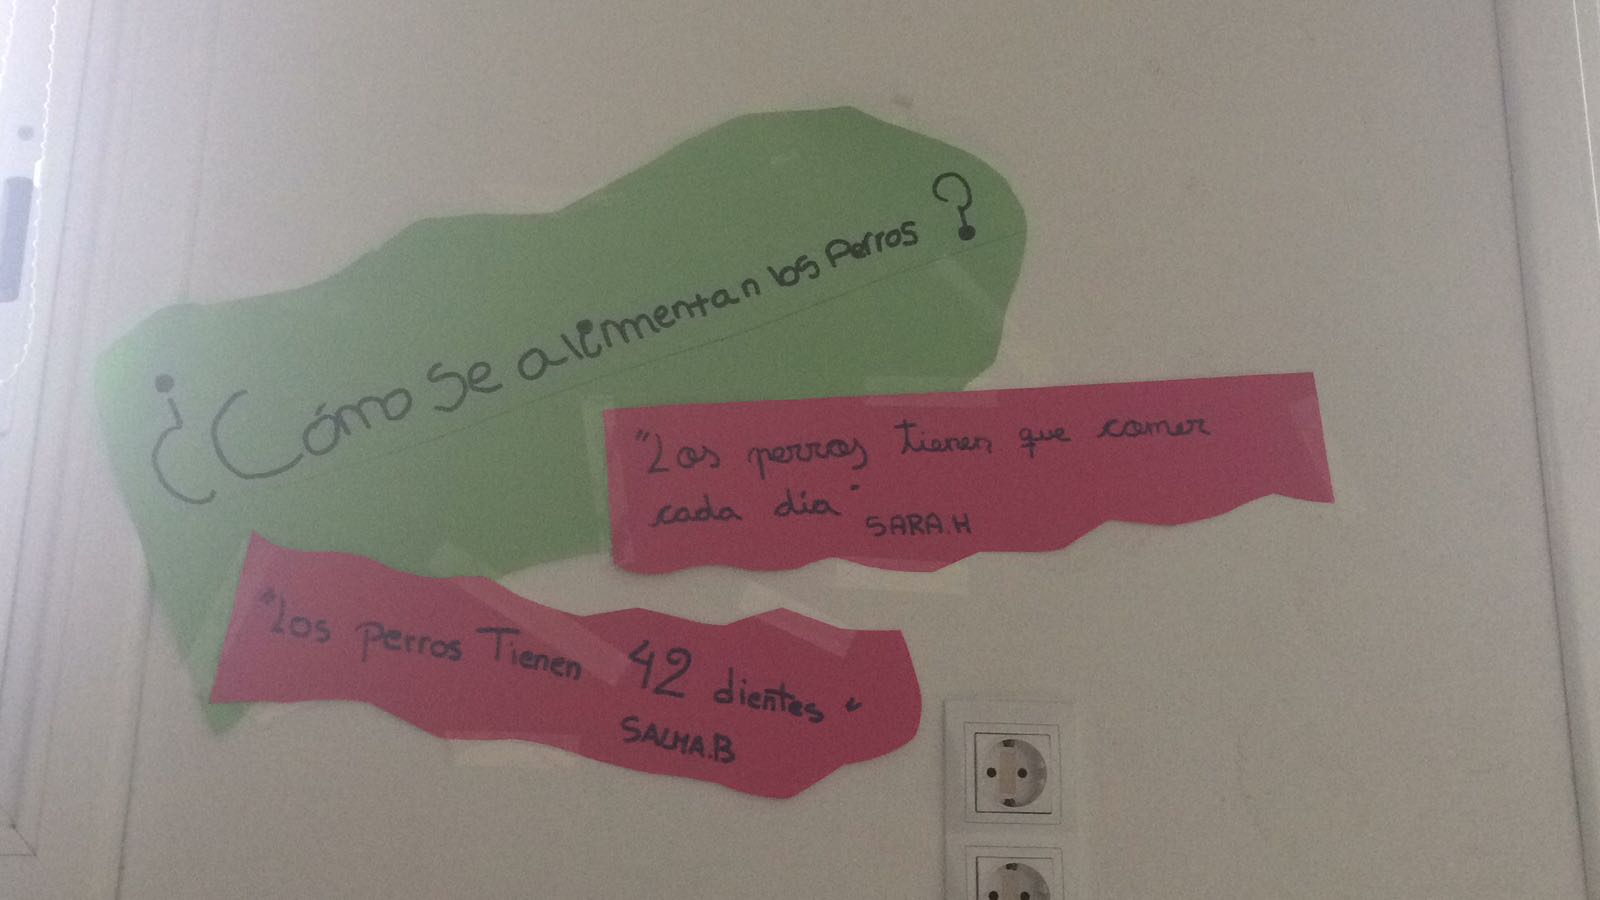 ¿Cómo se alimentan los perros?
"Los perros tienen que comer
cada día"
SARA.H
"Los perros Tienen 42 dientes"
SALMA.B